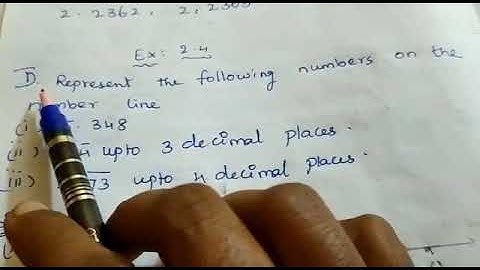 2. 2362, 2, 2363
Ex: 2.4
I). Represent the following numbers on the
number line
(i) . 348
(ii) 4 upto 3 decimal places.
(iii) 73 upto 4 decimal places.